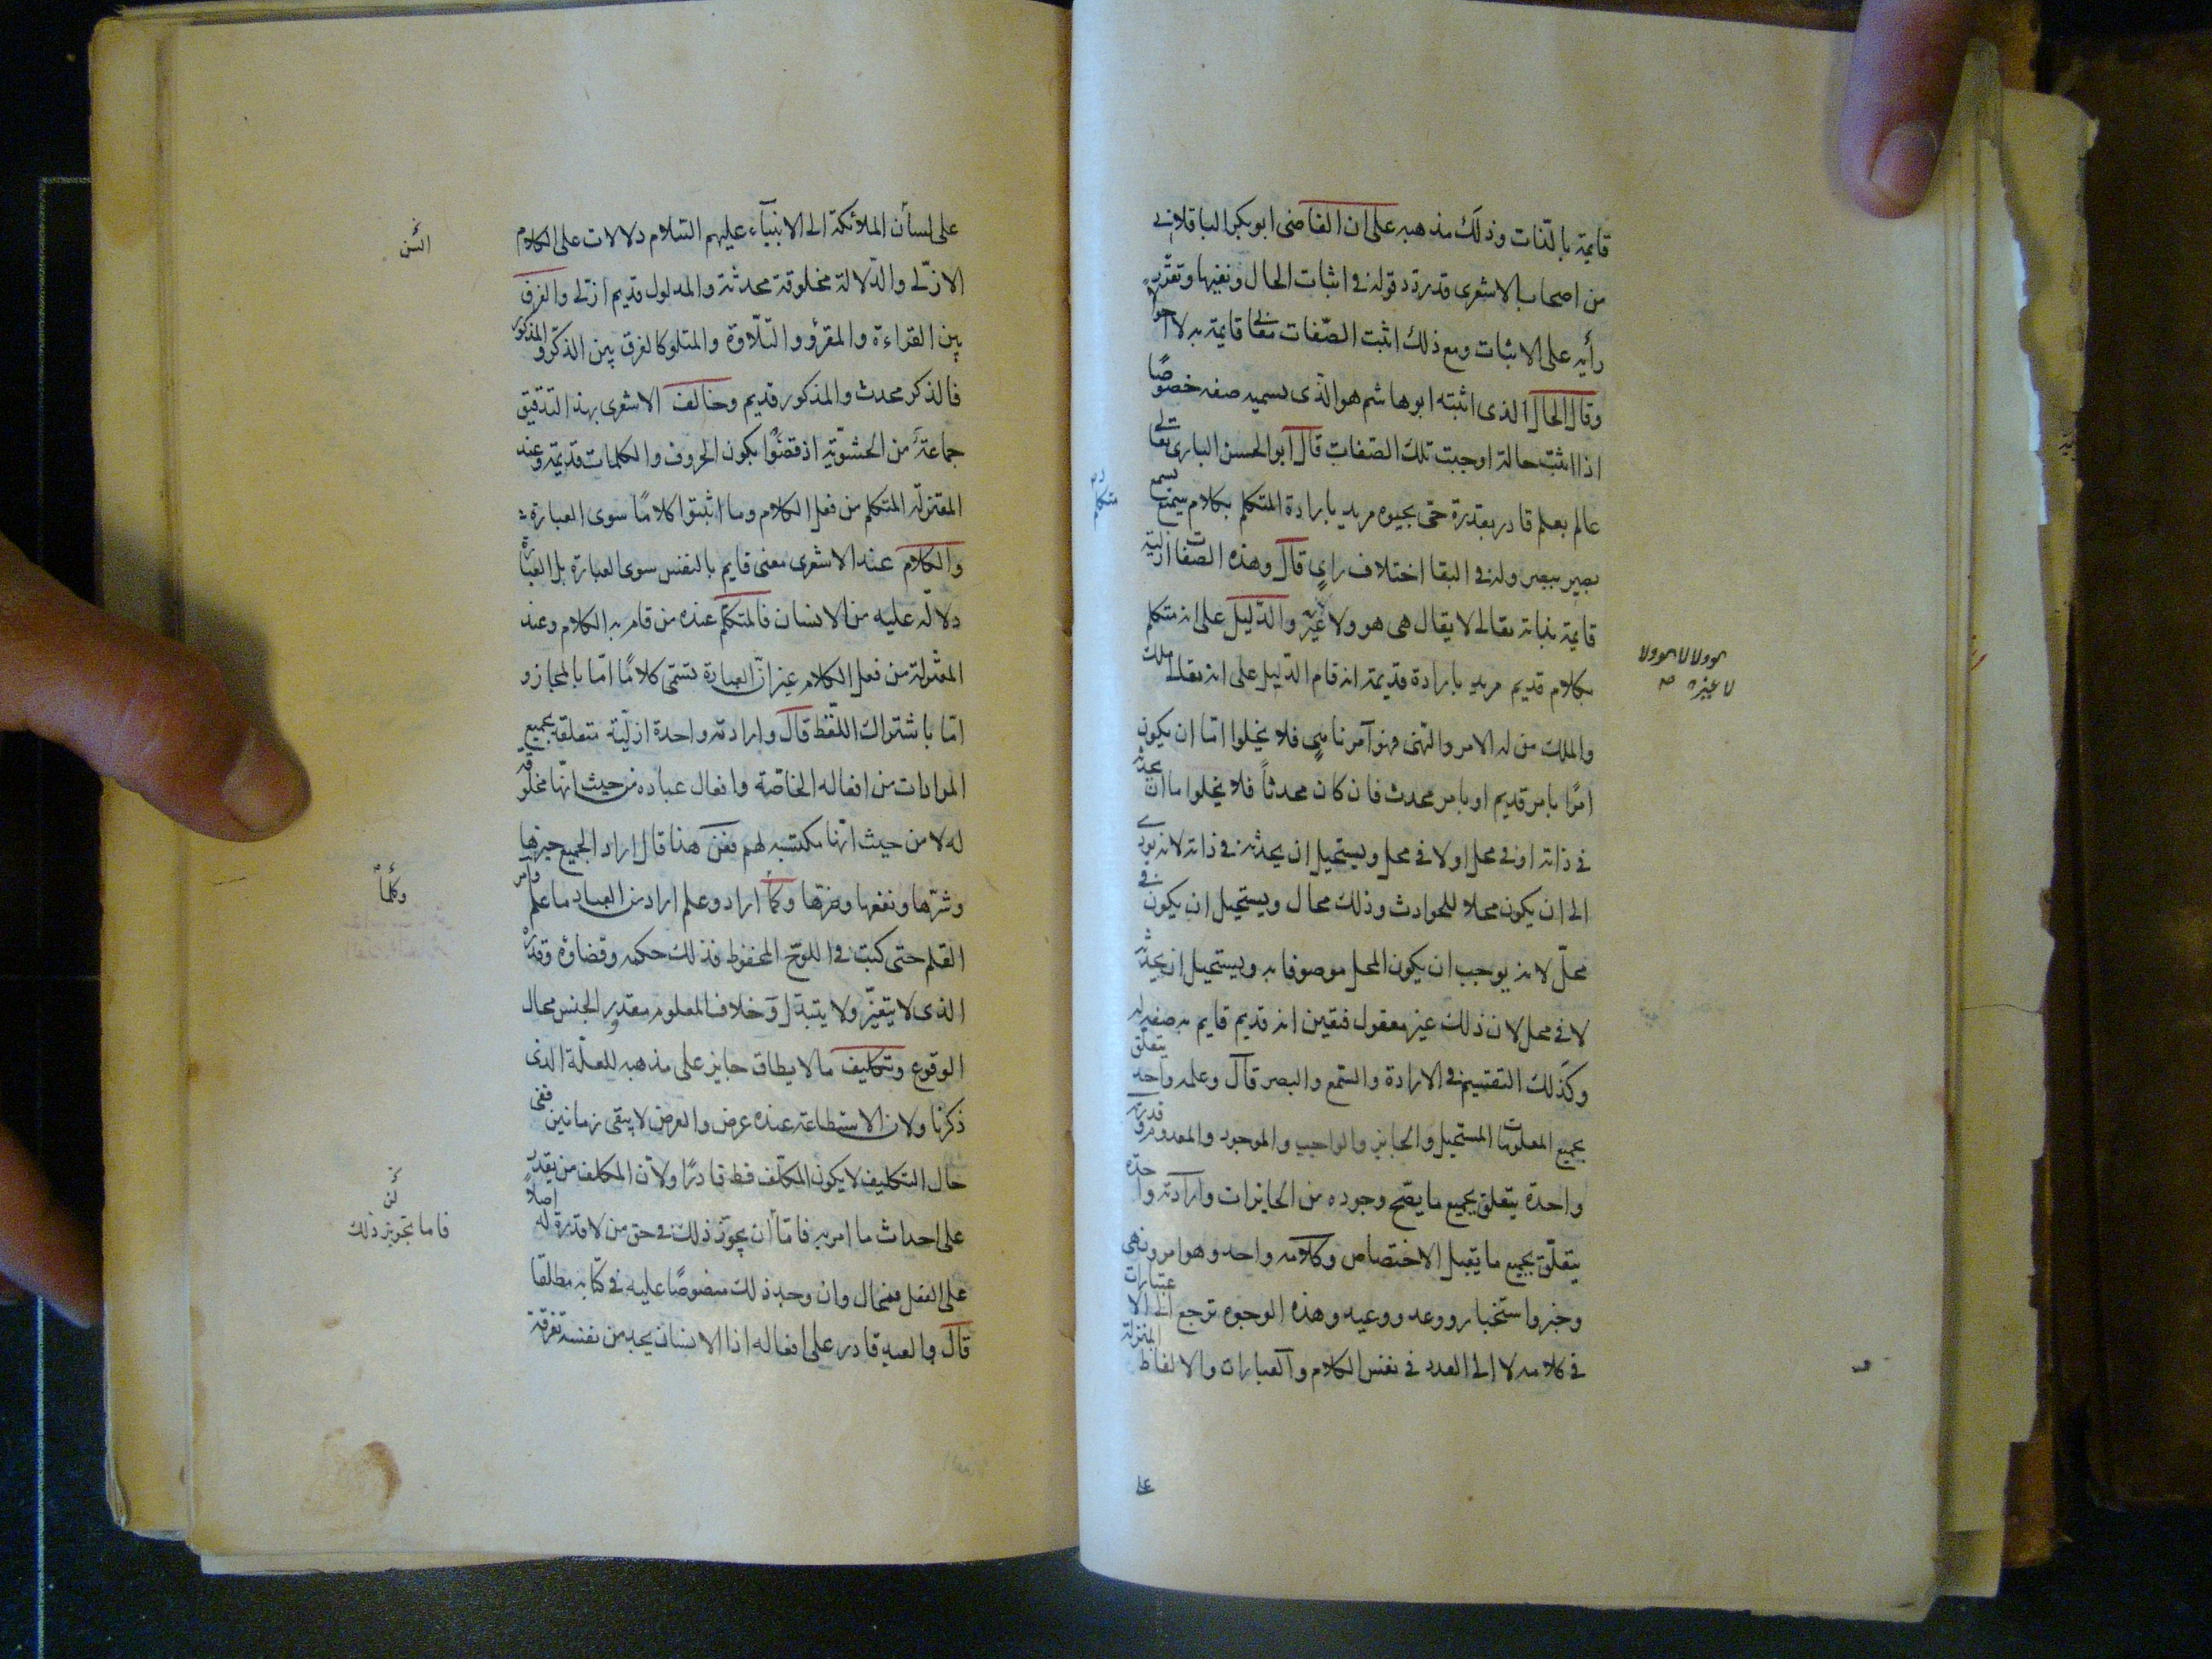 قايمة بالذات وذلك مذهبه على ان القاضى ابو بكر الباقلانى
من اصحاب الاشعرى قدردد قوله فى اثبات الحال ونفيها وتقرر
رأيه على الاثبات ومع ذلك اثبت الصّفات معانى قايمة به لا احوالا
وقال الحال الذى اثبته ابو هاشم هو الذى نسميه صفه خصوصًا
اذا اثبت حالة اوجبت تلك الصفات قال ابو الحسن البارى تعالى
عالم بعلم قادر بقدرة حى بحيوه مريد بارادة المتكلم بكلام سميع بسمع
بصير ببصر وله فى البقا اختلاف راى قال وهذه الصّفات ازلية
قايمة بذاته تعالى لا يقال هى هو ولا غيره والدّليل على انه متكلم
بكلام قديم مريد بارادة قديمة انه قام الدّليل على انه تعالى ملك
والملك من له الامر والنهى فهو آمر ناهى فلا يخلوا امّا ان يكون
امرًا بامر قديم او بامر محدث فان كان محدثاً فلا يخلوا ما ان يحدثه
فى ذاته او فى محل او لا فى محل ويستحيل ان يحدثه فى ذاته لانه يودى
الى ان يكون محلا للحوادث وذلك محال ويستحيل ان يكون فى
محلّ لانه يوجب ان يكون المحل موصوفا به ويستحيل ان يحدثه
لا فى محل لان ذلك غير معقول فتعين انه قديم قايم به صفة له
وكذلك التقسيم فى الارادة والسّمع والبصر قال وعلمه واحد يتعلق
بجميع المعلومات المستحيل والجايز والواجب والموجود والمعدوم وقدرته
واحدة يتعلق بجميع ما يصّح وجوده من الجايزات وارادته واحدة
يتعلّق بجميع ما يقبل الاختصاص وكلامه واحد وهو امر ونهى
وخبر واستخبار ووعد ووعيد وهذه الوجوه ترجع الى الاعتبارات
فى كلامه لا الى العدد فى نفس الكلام والعبارات والالفاظ المنزلة
متكلم
هو ولا لا هو ولا
لا غيره صح
على
على لسان الملائكة الى الانبيآء عليهم السّلام دلالات على الكلام
الازلى والدّلالة مخلوقة محدثة والمدلول قديم ازلى والفرق
بين القراءة والمقرؤ والتّلاوة والمتلو كالفرق بين الذكر والمذكور
فالذكر محدث والمذكور قديم وخالف الاشعرى بهذا التدقيق
جماعة من الحشويّة اذ قضوا بكون الحروف والكلمات قديمة وعند
المعتزلة المتكلم من فعل الكلام وما اثبتوا كلامًا سوى العبارة
والكلام عند الاشعرى معنى قايم بالنفس سوى العبارة بل العبارة
دلالة عليه من الانسان فالمتكلّم عنده من قام به الكلام وعند
المعتزلة من فعل الكلام غير انّ العبارة تسمّى كلامًا امّا بالمجاز و
امّا باشتراك اللّفظ قال وارادته واحدة ازلية متعلقة بجميع
المرادات من افعاله الخاصّة وافعال عباده من حيث انّها مخلوقة
له لا من حيث انّها مكتسبه لهم فعن هذا قال اراد الجميع خيرها
وشرّها ونفعها وضرّها وكما اراد وعلم اراد من العباد ما علم وامر
القلم حتى كتبت فى اللوح المحفوظ فذلك حكمه وقضاؤه وقدره
الذى لا يتغيّر ولا يتبدل وخلاف المعلوم مقدور الجنس محال
الوقوع وتكليف ما لا يطاق جايز على مذهبه للعلّة الذى
ذكرنا ولان الاستطاعة عنده عرض والعرض لا يبقى زمانين ففى
حال التكليف لا يكون المكلّف قط قادرًا ولان المكلف من يقدر
على احداث ما امر به فامّا ان يجوّز ذلك فى حق من لا قدرة له اصلاً
على الفعل فمحال وان وجد ذلك منصوصًا عليه فى كتابه مطلقا
قال والعبد قادر على افعاله اذ الانسان يجد من نفسه تفرقة
السن
وكما
لن
فاما تجويز ذلك